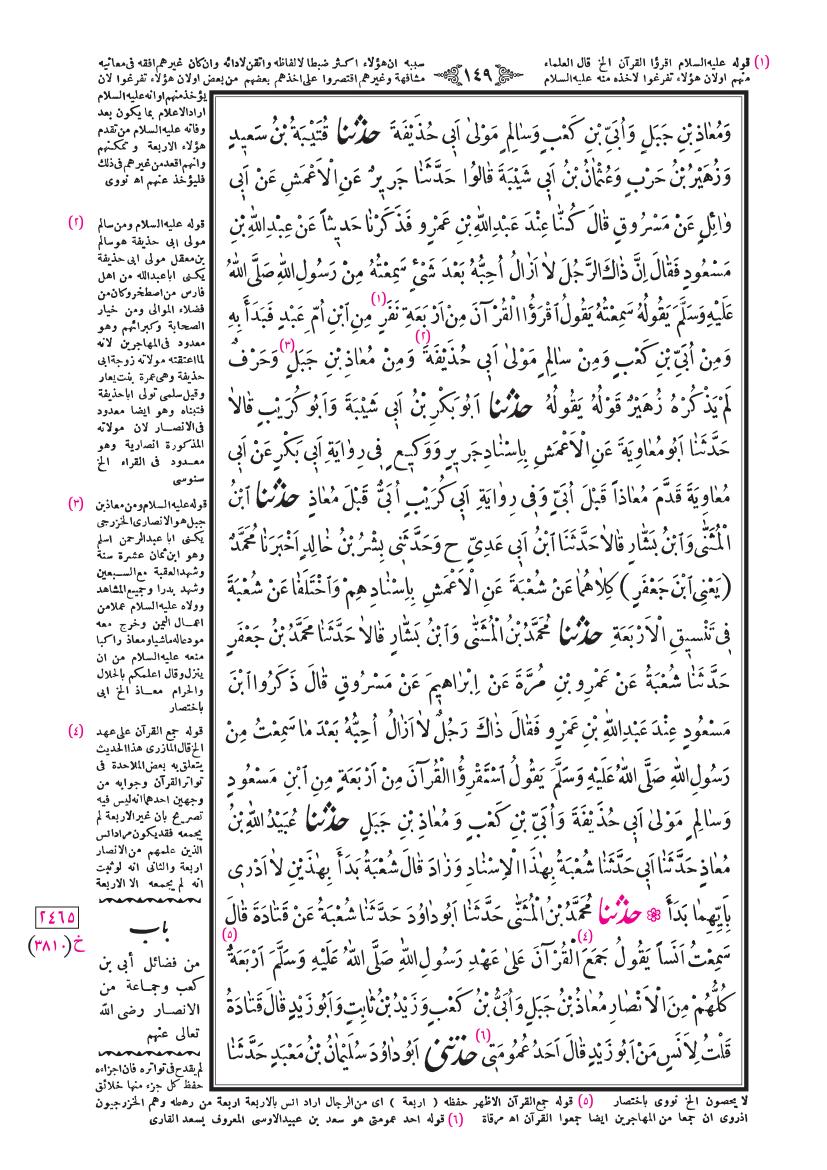 (١) قوله عليه السلام اقرؤا القرآن الخ قال العلماء
سببه ان هؤلاء اكثر ضبطا لالفاظه واتقن لادائه وان كان غيرهم افقه فى معانيه
منهم اولان هؤلاء تفرغوا لاخذه منه عليه السلام
مشافهة وغيرهم اقتصروا على اخذهم بعضهم من بعض اولان هؤلاء تفرغوا لان
١٤٩
يؤخذ منهم اوانه عليه السلام
اراد الاعلام بما يكون بعد
وفاته عليه السلام من تقدم
هؤلاء الاربعة وتمكنهم
وانهم اقعد من غيرهم فى ذلك
فليؤخذ عنهم اه نووى
وَمُعَاذِ بْنِ جَبَلٍ وَأُبَيِّ بْنِ كَعْبٍ وَسَالِمٍ مَوْلىٰ اَبِى حُذَيْفَةَ حَدَّثَنَا قُتَيْبَةُ بْنُ سَعِيدٍ
وَزُهَيْرُ بْنُ حَرْبٍ وَعُثْمَانُ بْنُ اَبِى شَيْبَةَ قَالُوا حَدَّثَنَا جَرِيرٌ عَنِ الْاَعْمَشِ عَنْ اَبِى
وَائِلٍ عَنْ مَسْرُوقٍ قَالَ كُنَّا عِنْدَ عَبْدِ اللهِ بْنِ عَمْرٍو فَذَكَرْنَا حَدِيثاً عَنْ عَبْدِ اللهِ بْنِ
مَسْعُودٍ فَقَالَ اِنَّ ذَاكَ الرَّجُلَ لَا اَزَالُ اُحِبُّهُ بَعْدَ شَىْءٍ سَمِعْتُهُ مِنْ رَسُولِ اللهِ صَلَّى اللهُ
عَلَيْهِ وَسَلَّمَ يَقُولُهُ سَمِعْتُهُ يَقُولُ اقْرَؤُا الْقُرْآنَ مِنْ اَرْبَعَةِ نَفَرٍ (١) مِنِ ابْنِ اُمِّ عَبْدٍ فَبَدَأَ بِهِ
وَمِنْ اُبَيِّ بْنِ كَعْبٍ وَمِنْ سَالِمٍ مَوْلىٰ اَبِى حُذَيْفَةَ (٢) وَمِنْ مُعَاذِ بْنِ جَبَلٍ (٣) وَحَرْفٌ
لَمْ يَذْكُرْهُ زُهَيْرٌ قَوْلُهُ يَقُولُهُ حَدَّثَنَا اَبُو بَكْرِ بْنُ اَبِى شَيْبَةَ وَاَبُو كُرَيْبٍ قَالَا
حَدَّثَنَا اَبُو مُعَاوِيَةَ عَنِ الْاَعْمَشِ بِاِسْنَادِ جَرِيرٍ وَوَكِيعٍ فِى رِوَايَةِ اَبِى بَكْرٍ عَنْ اَبِى
مُعَاوِيَةَ قَدَّمَ مُعَاذاً قَبْلَ اُبَيٍّ وَفِى رِوَايَةِ اَبِى كُرَيْبٍ اُبَيٌّ قَبْلَ مُعَاذٍ حَدَّثَنَا ابْنُ
الْمُثَنّٰى وَابْنُ بَشَّارٍ قَالَا حَدَّثَنَا ابْنُ اَبِى عَدِيٍّ ح وَحَدَّثَنِى بِشْرُ بْنُ خَالِدٍ اَخْبَرَنَا مُحَمَّدٌ
(يَعْنِى ابْنَ جَعْفَرٍ) كِلَاهُمَا عَنْ شُعْبَةَ عَنِ الْاَعْمَشِ بِاِسْنَادِهِمْ وَاخْتَلَفَا عَنْ شُعْبَةَ
فِى تَنْسِيقِ الْاَرْبَعَةِ حَدَّثَنَا مُحَمَّدُ بْنُ الْمُثَنّٰى وَابْنُ بَشَّارٍ قَالَا حَدَّثَنَا مُحَمَّدُ بْنُ جَعْفَرٍ
حَدَّثَنَا شُعْبَةُ عَنْ عَمْرِو بْنِ مُرَّةَ عَنْ اِبْرَاهِيمَ عَنْ مَسْرُوقٍ قَالَ ذَكَرُوا ابْنَ
مَسْعُودٍ عِنْدَ عَبْدِ اللهِ بْنِ عَمْرٍو فَقَالَ ذَاكَ رَجُلٌ لَا اَزَالُ اُحِبُّهُ بَعْدَ مَا سَمِعْتُ مِنْ
رَسُولِ اللهِ صَلَّى اللهُ عَلَيْهِ وَسَلَّمَ يَقُولُ اسْتَقْرِؤُا الْقُرْآنَ مِنْ اَرْبَعَةٍ مِنِ ابْنِ مَسْعُودٍ
وَسَالِمٍ مَوْلىٰ اَبِى حُذَيْفَةَ وَاُبَيِّ بْنِ كَعْبٍ وَمُعَاذِ بْنِ جَبَلٍ حَدَّثَنَا عُبَيْدُ اللهِ بْنُ
مُعَاذٍ حَدَّثَنَا اَبِى حَدَّثَنَا شُعْبَةُ بِهٰذَا الْاِسْنَادِ وَزَادَ قَالَ شُعْبَةُ بَدَأَ بِهٰذَيْنِ لَا اَدْرِى
بِاَيِّهِمَا بَدَأَ حَدَّثَنَا مُحَمَّدُ بْنُ الْمُثَنّٰى حَدَّثَنَا اَبُو دَاوُدَ حَدَّثَنَا شُعْبَةُ عَنْ قَتَادَةَ قَالَ
سَمِعْتُ اَنَساً يَقُولُ جَمَعَ (٤) الْقُرْآنَ عَلىٰ عَهْدِ رَسُولِ اللهِ صَلَّى اللهُ عَلَيْهِ وَسَلَّمَ اَرْبَعَةٌ (٥)
كُلُّهُمْ مِنَ الْاَنْصَارِ مُعَاذُ بْنُ جَبَلٍ وَاُبَيُّ بْنُ كَعْبٍ وَزَيْدُ بْنُ ثَابِتٍ وَاَبُو زَيْدٍ قَالَ قَتَادَةُ
قُلْتُ لِاَنَسٍ مَنْ اَبُو زَيْدٍ قَالَ اَحَدُ عُمُومَتِى (٦) حَدَّثَنِى اَبُو دَاوُدَ سُلَيْمَانُ بْنُ مَعْبَدٍ حَدَّثَنَا
(٢) قوله عليه السلام ومن سالم
مولى ابى حذيفة هو سالم
بن معقل مولى ابى حذيفة
يكنى ابا عبدالله من اهل
فارس من اصطخر وكان من
فضلاء الموالى ومن خيار
الصحابة وكبرائهم وهو
معدود فى المهاجرين لانه
لما اعتقته مولاته زوجة ابى
حذيفة وهى عمرة بنت يعار
وقيل سلمى تولى ابا حذيفة
فتبناه وهو ايضا معدود
فى الانصار لان مولاته
المذكورة انصارية وهو
معدود فى القراء الخ
سنوسى
(٣) قوله عليه السلام ومن معاذ بن
جبل هو الانصارى الخزرجى
يكنى ابا عبدالرحمن اسلم
وهو ابن ثمان عشرة سنة
وشهد العقبة مع السبعين
وشهد بدرا وجميع المشاهد
وولاه عليه السلام عملا من
اعمال اليمن وخرج معه
مودعا له ماشيا ومعاذ راكبا
منعه عليه السلام من ان
ينزل وقال اعلمكم بالحلال
والحرام معاذ الخ ابى
باختصار
(٤) قوله جمع القرآن على عهد
الخ قال المازرى هذا الحديث
يتعلق به بعض الملاحدة فى
تواتر القرآن وجوابه من
وجهين احدهما انه ليس فيه
تصريح بان غير الاربعة لم
يجمعه فقد يكون مراد انس
الذين علمهم من الانصار
اربعة والثانى انه لو ثبت
انه لم يجمعه الا الاربعة
٢٤٦٥
خ (٣٨١٠)
باب
من فضائل أبى بن
كعب وجماعة من
الانصار رضى الله
تعالى عنهم
لم يقدح فى تواتره فان اجزاءه
حفظ كل جزء منها خلائق
لا يحصون الخ نووى باختصار (٥) قوله جمع القرآن الاظهر حفظه ( اربعة ) اى من الرجال اراد انس بالاربعة اربعة من رهطه وهم الخزرجيون
اذروى ان جمعا من المهاجرين ايضا جمعوا القرآن اه مرقاة (٦) قوله احد عمومتى هو سعد بن عبيد الاوسى المعروف بسعد القارى